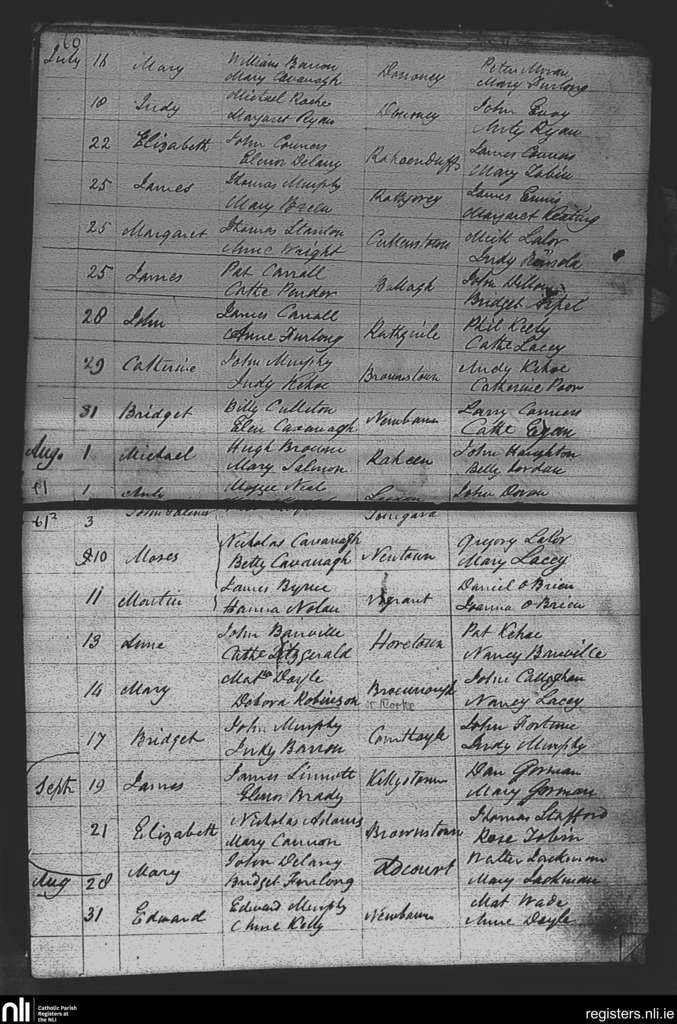 60
July 18 Mary William Barron Donooney Peter Moran
Mary Cavanagh Mary Furlong
18 Judy Michael Roche Donooney John Envoy
Margaret Ryan Ryan
22 Elizabeth John Connors Raheenduff James Connors
Elenor Delany Mary Tobin
25 James Thomas Murphy James Ennis
Mary Breen Margaret Keating
25 Margaret Thomas Stanton Cullenstown Mick Lalor
Anne Wright Judy Kinsela
25 James Pat Carrall Ballagh John Dillon
Cathe Bridget
28 John James Carrall Phil Kielly
Anne Furlong Cathe Lacey
29 Catherine John Murphy Brownstown Andy Kehoe
Judy Kehoe Catherine Poor
31 Bridget Billy Culleton Newbawn Larry Connors
Elen Cavanagh Cathe Egan
Aug. 1 Michael Hugh Browne Raheen John Haughton
Mary Salmon Betty Jordan
61 1 Neal John Doran
61 3
10 Moses Nicholas Cavanagh Newtown Gregory Lalor
Betty Cavanagh Mary Lacey
11 Martin James Byrne Vagrant Daniel O Brien
Hanna Nolan Joanna O Brien
13 Anne John Banville Horetown Pat Kehoe
Cathe Fitzgerald Nancy Banville
14 Mary Doyle John Callaghan
Debora Robinson or Rorke Nancy Lacey
17 Bridget John Murphy John Fortune
Judy Barron Judy Murphy
Sept 19 James James Sinnott Kellystown Dan Gorman
Elenor Brady Mary Gorman
21 Elizabeth Nicholas Adams Brownstown Thomas Stafford
Mary Cannon Rose Tobin
Aug 28 Mary John Delany Walter
Bridget Furlong Mary
31 Edward Edward Murphy Newbawn Mat Wade
Anne Kelly Anne Doyle
nli
Catholic Parish
Registers at
the NLI
registers.nli.ie